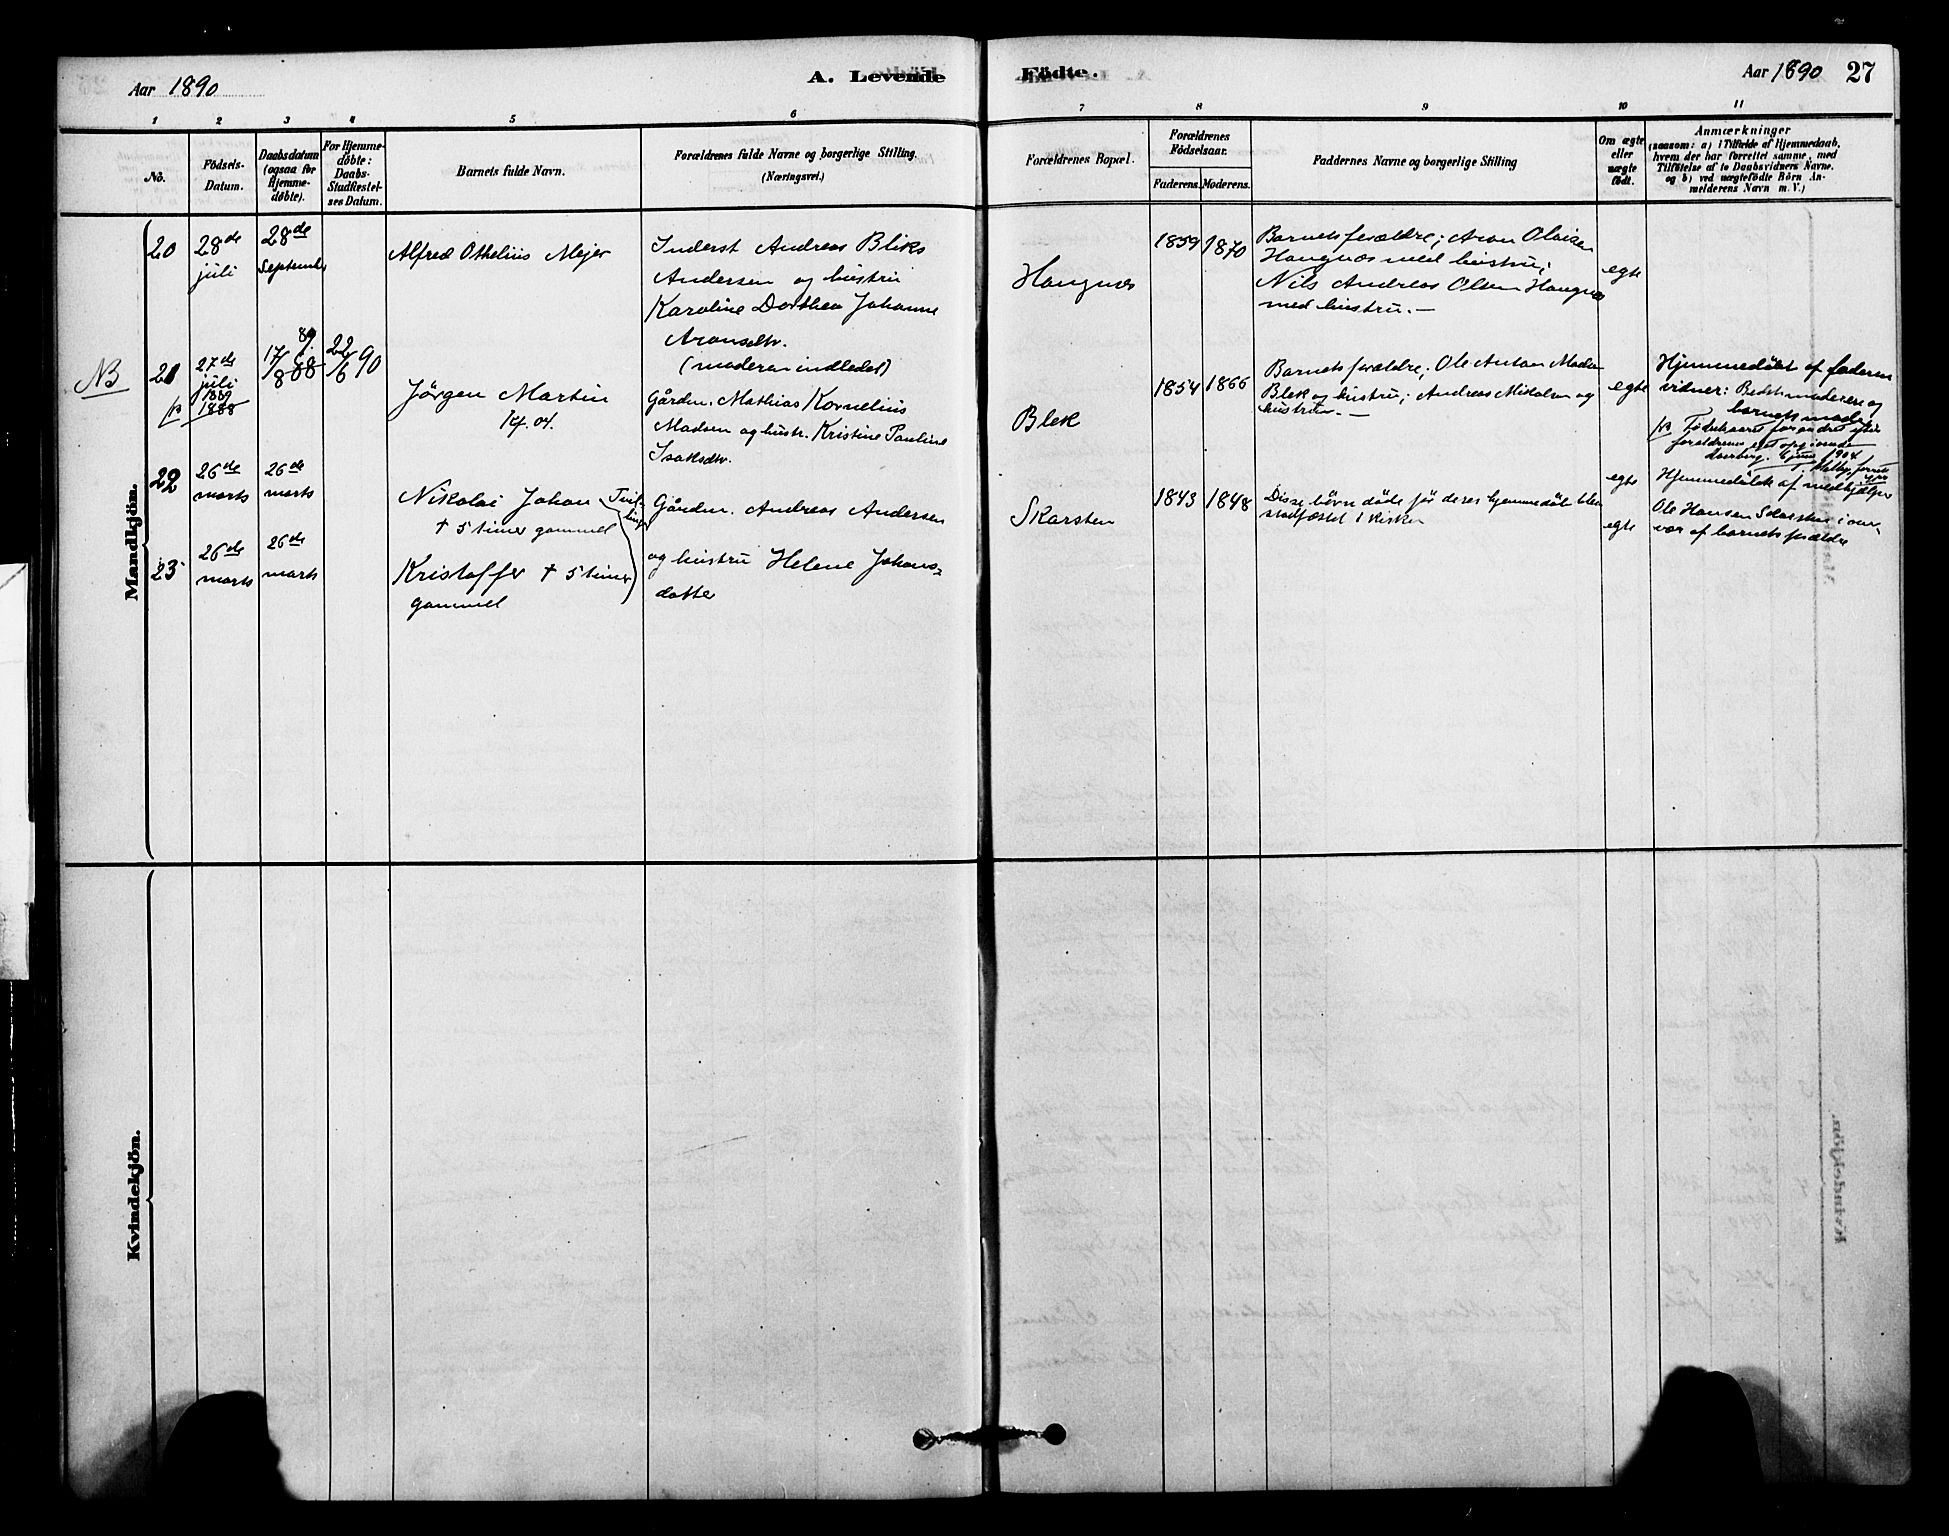 Aar 1890
A. Levende Födte.
Aar 1890 27
1 2 3 4 5 6 7 8 9 10 11
No.
Födsels-
Datum.
Daabsdatum
(ogsaa for
Hjemme-
döbte).
For Hjemme-
döbte:
Daabs-
Stadfæstel-
ses Datum.
Barnets fulde Navn.
Forældrenes fulde Navne og borgerlige Stilling.
(Næringsvei.)
Forældrenes Bopæl.
Forældrenes
Födselsaar.
Faderens. Moderens.
Faddernes Navne og borgerlige Stilling
Om ægte
eller
uægte
födt.
Anmærkninger
(saasom: a) i Tilfælde af Hjemmedaab,
hvem der har forrettet samme, med
Tilföielse af to Daabsvidners Navne.
og b) ved uægtefödte Börn An-
melderens Navn m. V.)
Mandkjön.
20
28de
juli
28de
Septembr
Alfred Othelius Mejer
Inderst Andreas Bliks
Andersen og hustru
Karoline Dorthea Johanne
Aronsdtr.
(moderen indledet)
Haugnes
1859 1870
Barnets forældre; Aron Olaisen
Haugnæs med hustru;
Nils Andreas Olsen Haugnæs
med hustru. —
egte
NB
21
27de
juli
1889
1888
17/8 89. 88
22/6 90
Jörgen Martin
Kf. 04.
Gårdm. Mathias Kornelius
Madsen og hustr. Kristine Pauline
Isaksdtr.
Blek
1854 1866
Barnets forældre; Ole Anton Madsen
Blek og hustru; Andreas Nikolsen og
hustru. —
egte
Hjemmedöbt af faderen
vidner: Bedstemoderen og
barnets moder
Födselsaaret forandret efter
forældrenes eget opgivende
1904
22
26de
marts
26de
marts
Nikolai Johan
† 5 timer gammel
Tvil-
linger
Gårdm. Andreas Andersen
Skarsten
1843 1848
Disse börn döde för deres hjemmedåb blev
stadfæstet i kirken
egte
Hjemmedöbt af medhjælper
Ole Hansen Skarsten i nær-
vær af barnets forældre
23
26de
marts
26de
marts
Kristoffer † 5 timer
gammel
og hustru Helene Johans-
datter
egte
Kvindekjön.